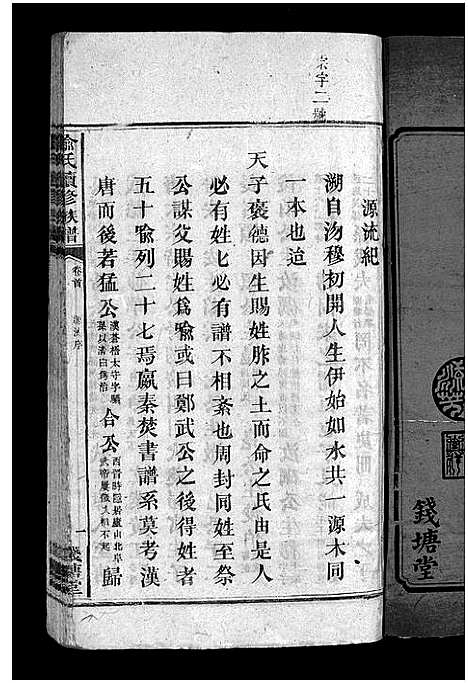 錢塘堂
宗字二號
源流紀
溯自沕穆初開人生伊始如水共一源木同
一本也迨
天子褒德因生賜姓胙之土而命之氏由是人
必有姓七必有譜不相紊也周封同姓至祭
公謀父賜姓爲喩或曰鄭武公之後得姓者
五十喩列二十七焉嬴秦焚書譜系莫考漢
唐而後若猛公漢蒼梧太守字驕孫以清白爲治合公西晉時隱居廬山北岸武帝屢徵不起歸
喻氏續修族譜
卷首
一
錢塘堂